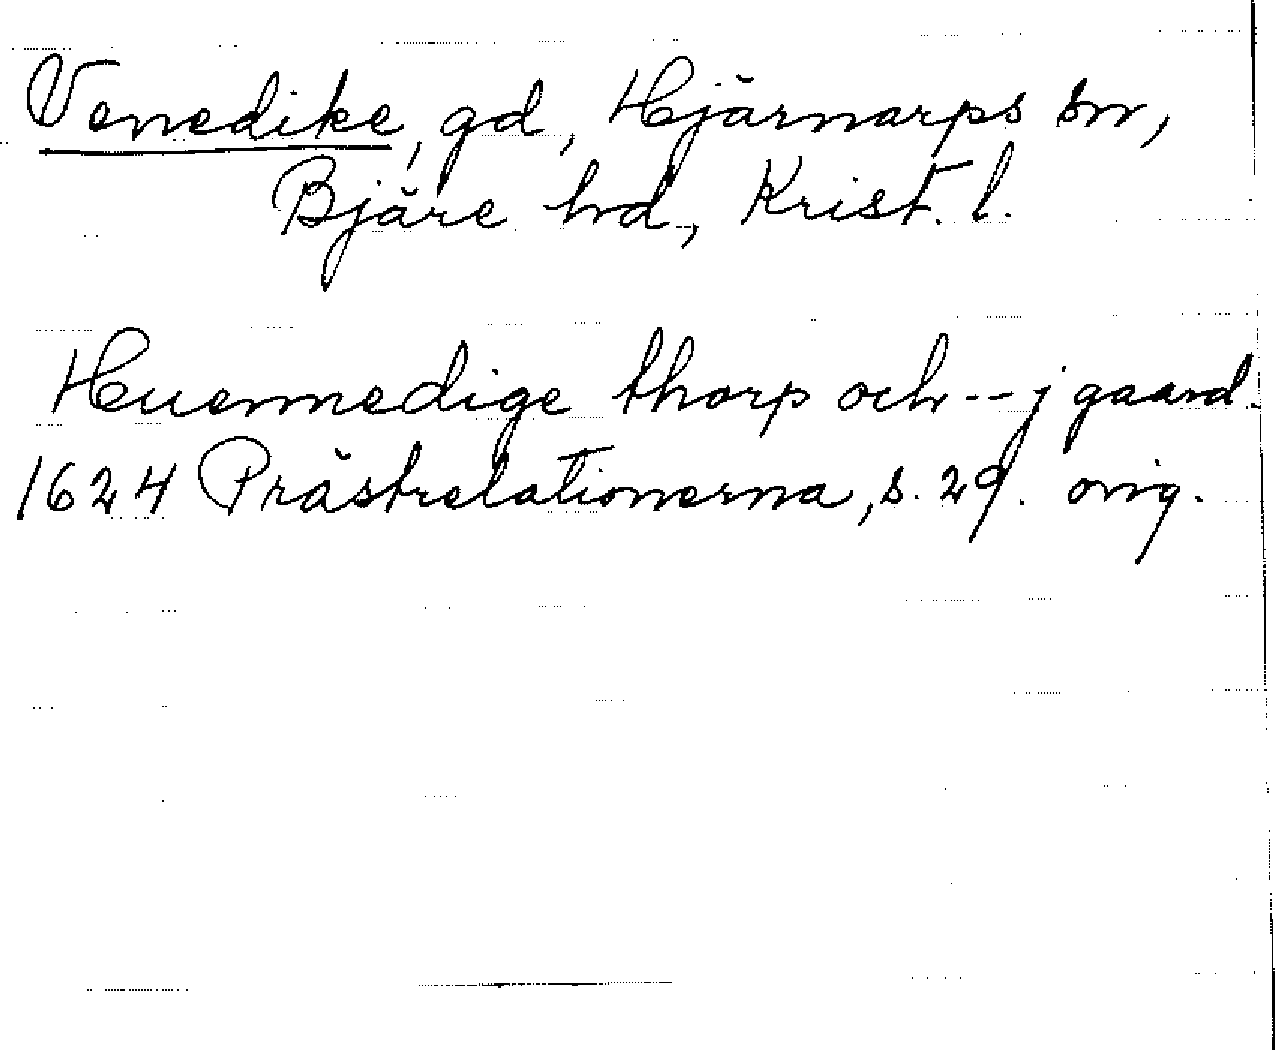 Venedike, gd, Hjärnarps sn,
Bjäre hd, Krist. l.
Huennedige thorp och -- j gaard.
1624 Prästrelationerna, s. 29. orig.